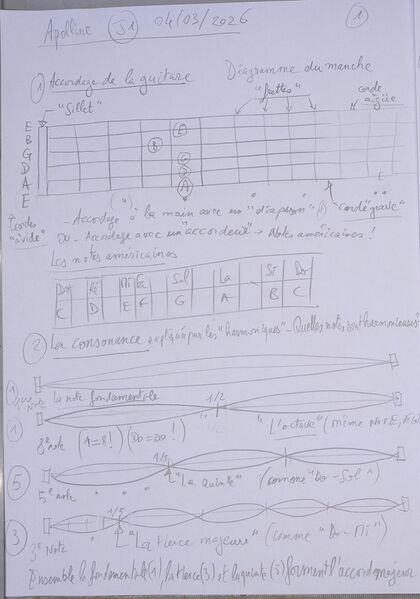 Apolline J1 04/03/2026 1
1 Accordage de la guitare Diagramme du manche
"Sillet" "frettes" corde aigüe
E
B
G
D
A
E
E
B
G
D
A
E
cordes "à vide" - Accordage à la main avec un "diapason" corde "grave"
Ou - Accordage avec un "accordeur" → Notes américaines !
Les notes américaines
Do Ré Mi Fa Sol La Si Do
C D E F G A B C
2 La consonance expliquée par les "harmoniques" - Quelles notes sont harmonieuses
1 1ère Note La note fondamentale
1/2
1 8e note (1=8!) (Do=Do!) "L'octave" (même NOTE,
1/3
5 5e note "La quinte" (comme "Do-Sol")
1/5
3 3e Note "La tierce majeure" (comme "Do-Mi")
Ensemble la fondamentale (1), la tierce (3) et la quinte (5) forment l'accord majeur